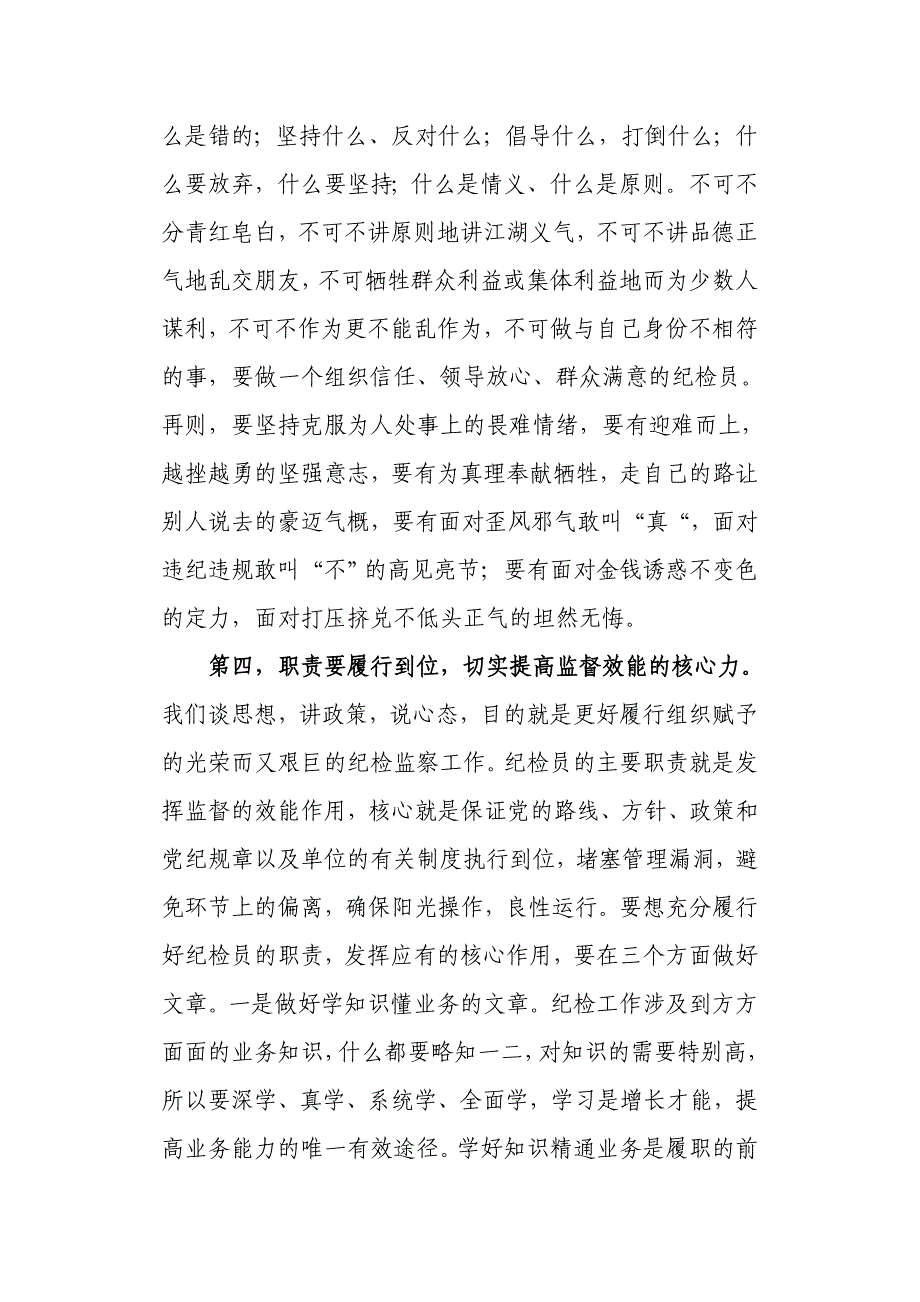 么是错的；坚持什么、反对什么；倡导什么，打倒什么；什
么要放弃，什么要坚持；什么是情义、什么是原则。不可不
分青红皂白，不可不讲原则地讲江湖义气，不可不讲品德正
气地乱交朋友，不可牺牲群众利益或集体利益地而为少数人
谋利，不可不作为更不能乱作为，不可做与自己身份不相符
的事，要做一个组织信任、领导放心、群众满意的纪检员。
再则，要坚持克服为人处事上的畏难情绪，要有迎难而上，
越挫越勇的坚强意志，要有为真理奉献牺牲，走自己的路让
别人说去的豪迈气概，要有面对歪风邪气敢叫“真“，面对
违纪违规敢叫“不”的高见亮节；要有面对金钱诱惑不变色
的定力，面对打压挤兑不低头正气的坦然无悔。
第四，职责要履行到位，切实提高监督效能的核心力。
我们谈思想，讲政策，说心态，目的就是更好履行组织赋予
的光荣而又艰巨的纪检监察工作。纪检员的主要职责就是发
挥监督的效能作用，核心就是保证党的路线、方针、政策和
党纪规章以及单位的有关制度执行到位，堵塞管理漏洞，避
免环节上的偏离，确保阳光操作，良性运行。要想充分履行
好纪检员的职责，发挥应有的核心作用，要在三个方面做好
文章。一是做好学知识懂业务的文章。纪检工作涉及到方方
面面的业务知识，什么都要略知一二，对知识的需要特别高，
所以要深学、真学、系统学、全面学，学习是增长才能，提
高业务能力的唯一有效途径。学好知识精通业务是履职的前